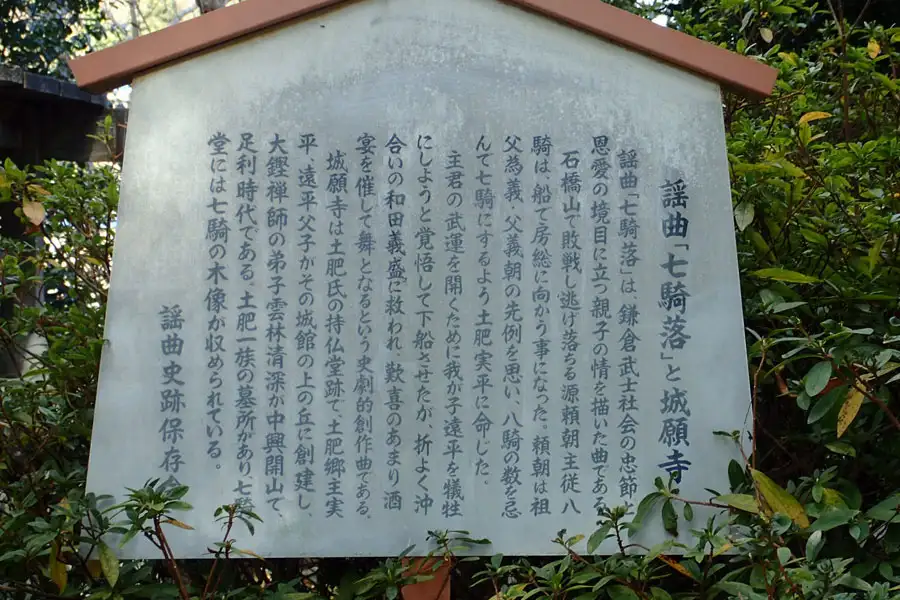 謡曲「七騎落」と城願寺
謡曲「七騎落」は、鎌倉武士社会の忠節
恩愛の境目に立つ親子の情を描いた曲である
石橋山で敗戦し逃げ落ちる源頼朝主従八
騎は、船で房総に向かう事になった。頼朝は祖
父為義、父義朝の先例を思い、八騎の数を忌
んで七騎にするよう土肥実平に命じた。
主君の武運を開くために我が子遠平を犠牲
にしようと覚悟して下船させたが、折よく沖
合いの和田義盛に救われ、歓喜のあまり酒
宴を催して舞となるという史劇的創作曲である。
城願寺は土肥氏の持仏堂跡で、土肥郷主実
平、遠平父子がその城館の上の丘に創建し、
大鐙禅師の弟子雲林清深が中興開山で、
足利時代である。土肥一族の墓所があり七騎
堂には七騎の木像が収められている。
謡曲史跡保存会